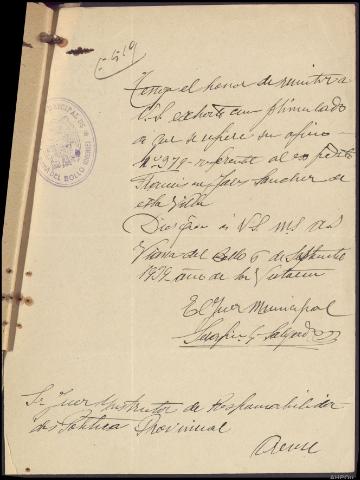 Tengo el honor de remitir a
V.S. exhorto cumplimentado
a que se refiere su oficio
nº 979 referente al expediente
Sanchez de
esta Villa
Dios guarde a V.S. ms. as.
Viana del Bollo 6 de Septiembre
1939 año de la Victoria
El Juez Municipal
Sr. Juez Instructor de Responsabilidades
Politica Provincial
Orense
DEL BOLLO